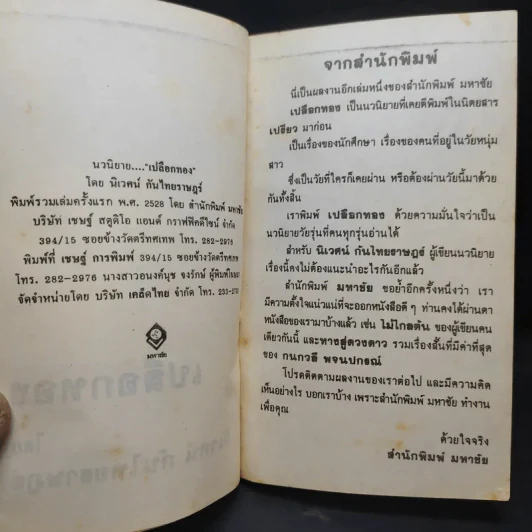 นวนิยาย...."เปลือกทอง"
โดย นิเวศน์ กันไทยราษฎร์
พิมพ์รวมเล่มครั้งแรก พ.ศ. 2528 โดย สำนักพิมพ์ มหาชัย
บริษัท เชษฐ์ สตูดิโอ แอนด์ กราฟฟิคดีไซน์ จำกัด
394/15 ซอยข้างวัดตรีทศเทพ โทร. 282-2976
พิมพ์ที่ เชษฐ์ การพิมพ์ 394/15 ซอยข้างวัดตรีทศเทพ
โทร. 282-2976 นางสาวอนงค์นุช จงรักษ์ ผู้พิมพ์โฆษณา
จัดจำหน่ายโดย บริษัท เคล็ดไทย จำกัด โทร.
มหาชัย
จากสำนักพิมพ์
นี่เป็นผลงานอีกเล่มหนึ่งของสำนักพิมพ์ มหาชัย
เปลือกทอง เป็นนวนิยายที่เคยตีพิมพ์ในนิตยสาร
เปรียว มาก่อน
เป็นเรื่องของนักศึกษา เรื่องของคนที่อยู่ในวัยหนุ่ม
สาว
ซึ่งเป็นวัยที่ใครก็เคยผ่าน หรือต้องผ่านวัยนี้มาด้วย
กันทั้งสิ้น
เราพิมพ์ เปลือกทอง ด้วยความมั่นใจว่าเป็น
นวนิยายวัยรุ่นที่คนทุกรุ่นอ่านได้
สำหรับ นิเวศน์ กันไทยราษฎร์ ผู้เขียนนวนิยาย
เรื่องนี้คงไม่ต้องแนะนำอะไรกันอีกแล้ว
สำนักพิมพ์ มหาชัย ขอย้ำอีกครั้งหนึ่งว่า เรา
มีความตั้งใจแน่วแน่ที่จะออกหนังสือดี ๆ ท่านคงได้ผ่านตา
หนังสือของเรามาบ้างแล้ว เช่น ไม้ไกลต้น ของผู้เขียนคน
เดียวกันนี้ และทางสู่ดวงดาว รวมเรื่องสั้นที่มีค่าที่สุด
ของ กนกวลี พจนปกรณ์
โปรดติดตามผลงานของเราต่อไป และมีความคิด
เห็นอย่างไร บอกเราบ้าง เพราะสำนักพิมพ์ มหาชัย ทำงาน
เพื่อคุณ
ด้วยใจจริง
สำนักพิมพ์ มหาชัย